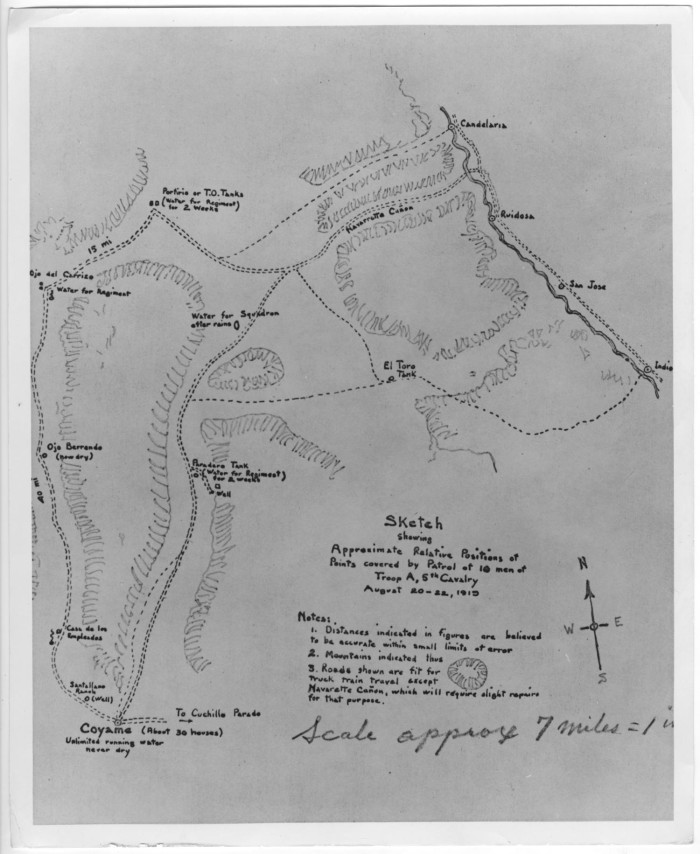 Candelaria
Porfirio or T.O. Tanks
(Water for Regiment)
for 2 Weeks
Ruidosa
Navarrotta Cañon
15 mi
Ojo del Carrizo
Water for Regiment
San Jose
Water for Squadron
after rains
El Toro
Tank
Indio
Ojo Berrendo
(now dry)
Paradero Tank
(Water for Regiment)
for 2 weeks
Well
40 mi
Sketch
showing
Approximate Relative Positions of
Points covered by Patrol of 10 men of
Troop A, 5th Cavalry
August 20-22, 1919
N
W E
S
Notes:
1. Distances indicated in figures are believed
to be accurate within small limits of error
2. Mountains indicated thus
3. Roads shown are fit for
truck train travel except
Navarette Cañon, which will require slight repairs
for that purpose.
Casa de los
Empleados
Santallano
Ranch
(Well)
To Cuchillo Parado
Coyame (About 30 houses)
Unlimited running water
never dry
Scale approx 7 miles = 1 in